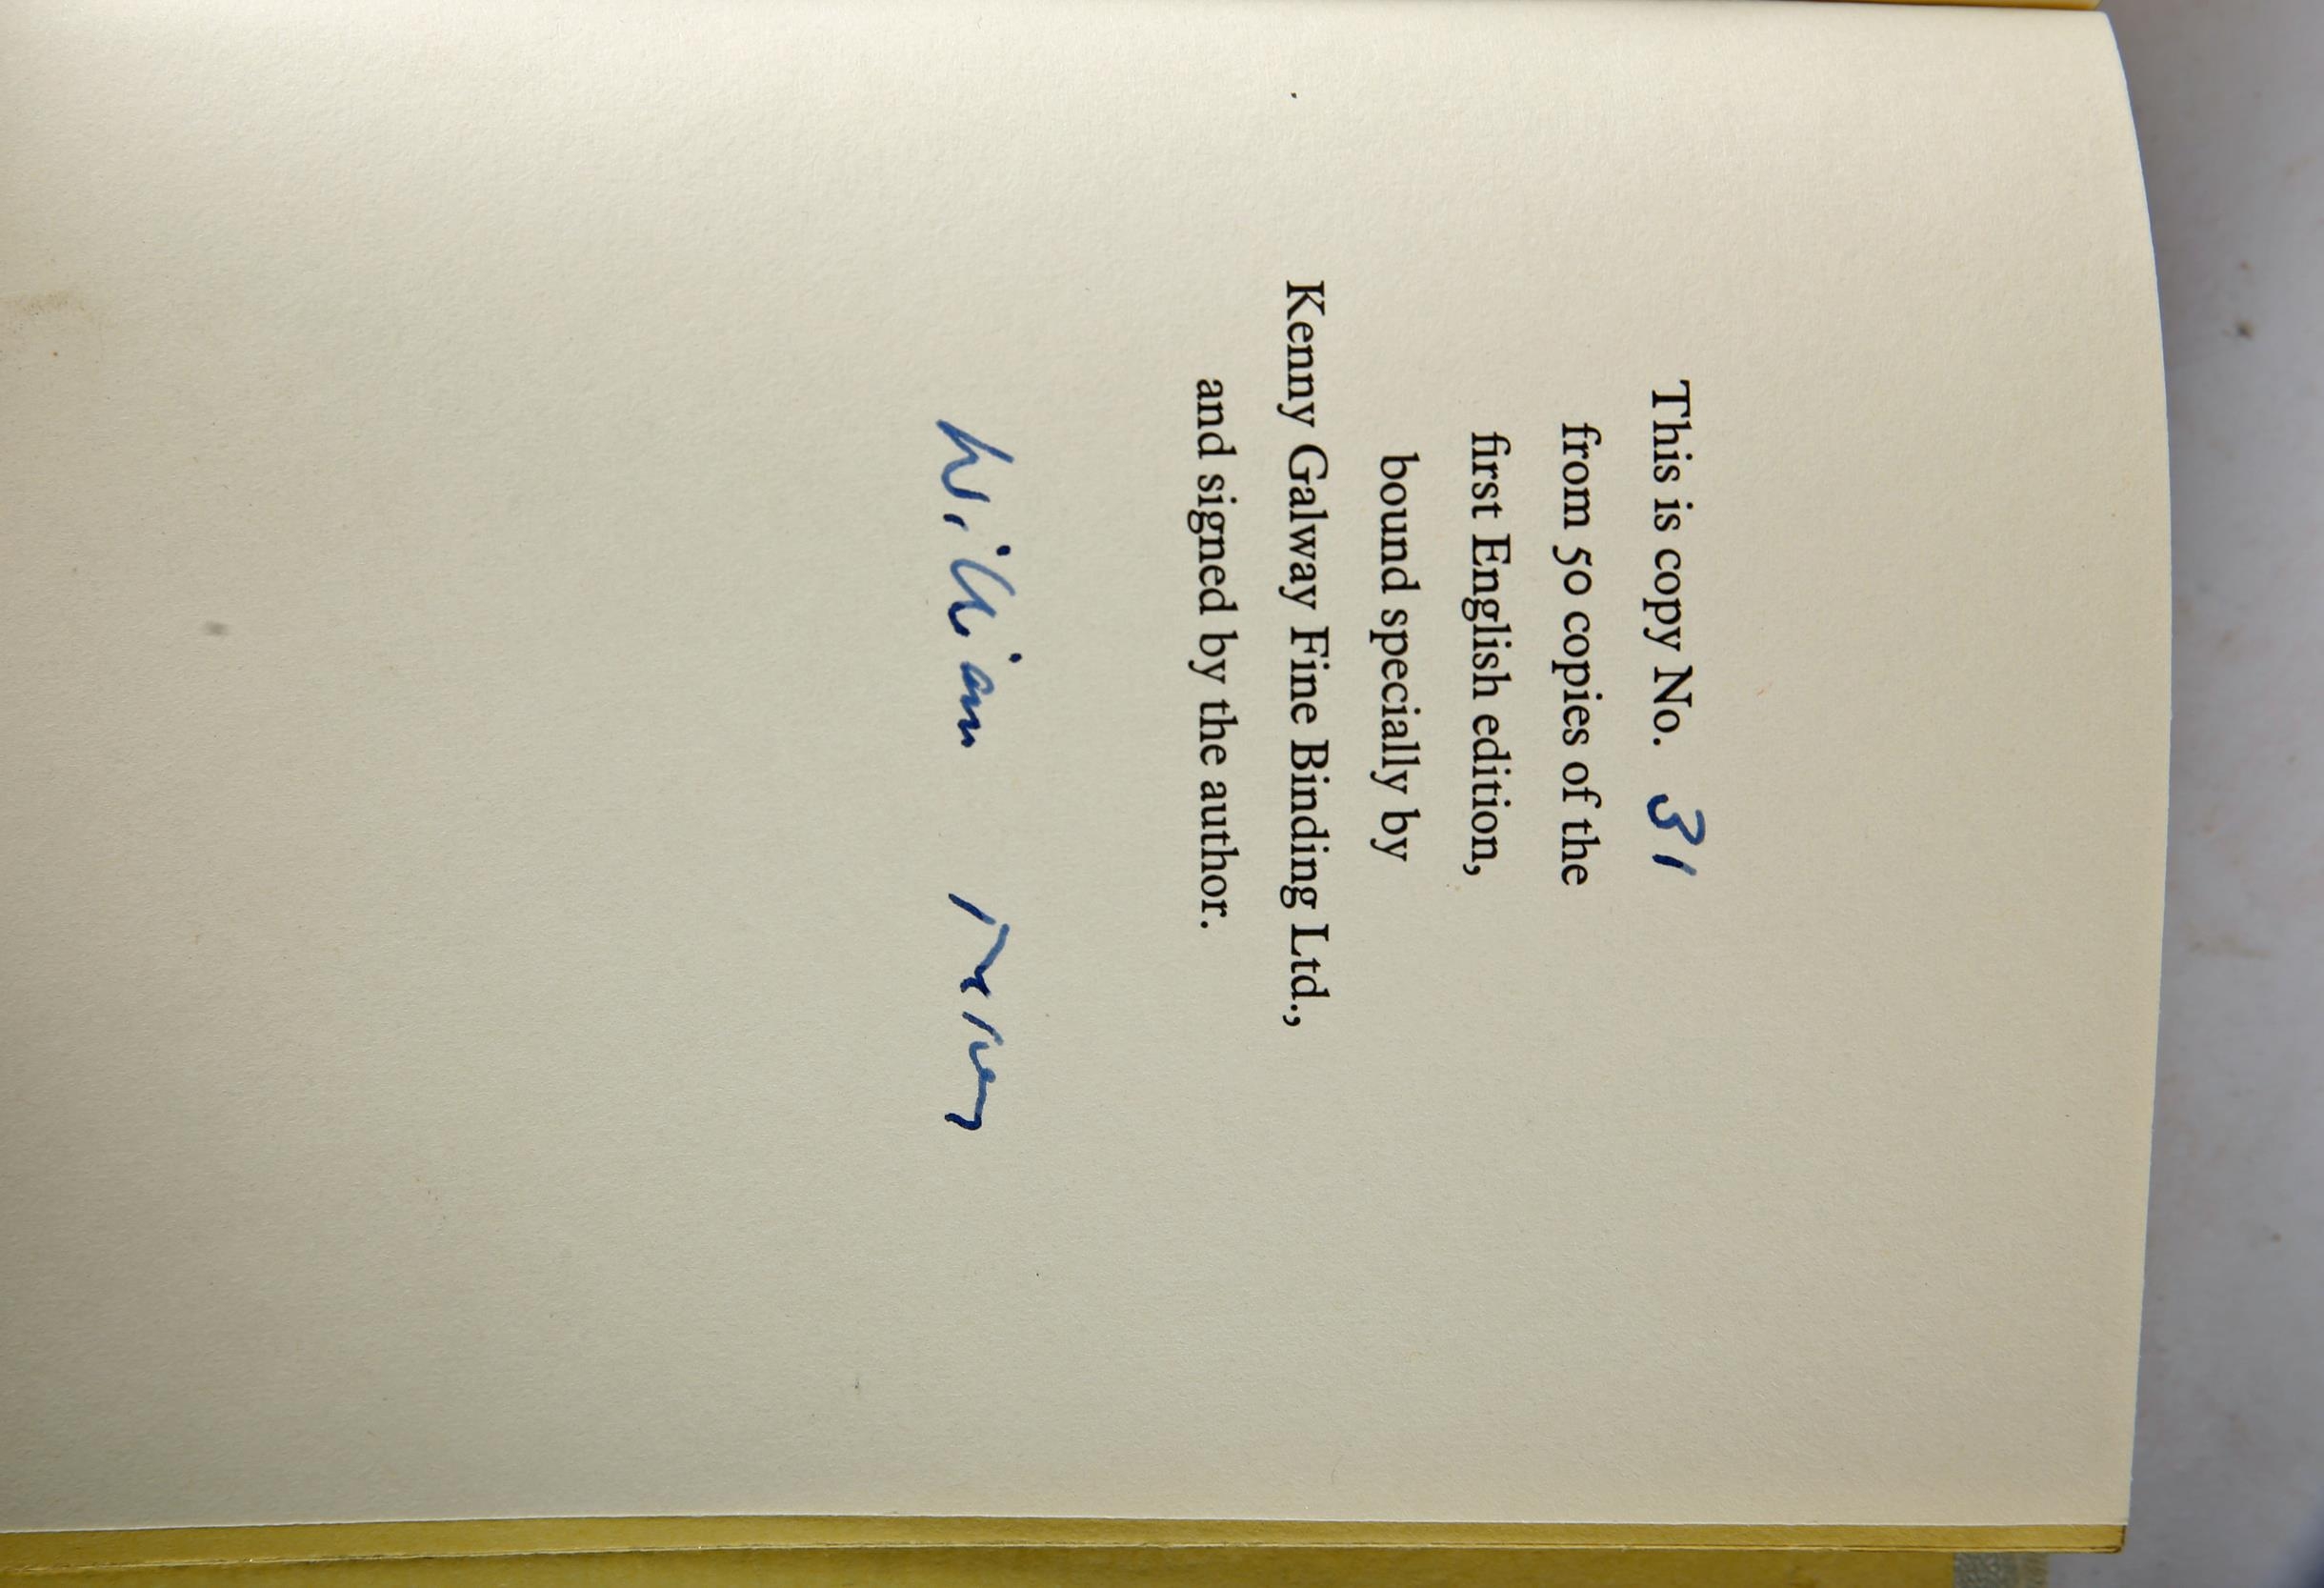 This is copy No. 31
from 50 copies of the
first English edition,
bound specially by
Kenny Galway Fine Binding Ltd.,
and signed by the author.
William Trevor